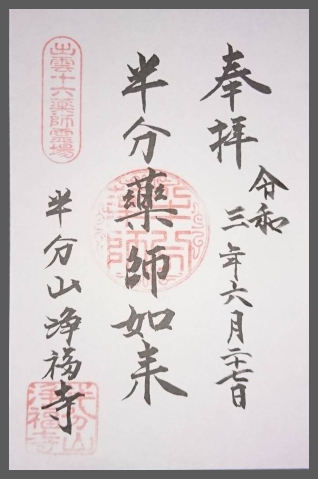 奉拝
令和三年六月二十七日
半分薬師如来
半分山浄福寺
出雲十六薬師霊場
半分山
浄福寺